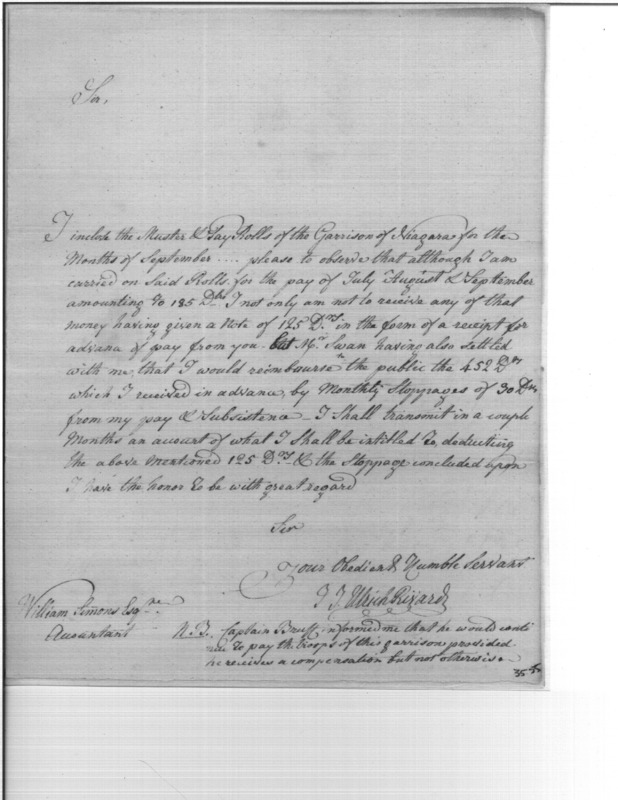 Sir,
I inclose the Muster & Pay Rolls of the Garrison of Niagara for the
Months of September .... please to observe that although I am
carried on Said Rolls for the pay of July August & September
amounting to 185 Drs I not only am not to receive any of that
money having given a Note of 125 Drs in the form of a receipt for
advance of pay from you. but Mr Swan having also settled
with me, that I would reimbourse the public the 452 Drs
which I received in advance by Monthly Stoppages of 30 Drs
from my pay & Subsistence – I Shall transmit in a couple
Months an account of what I Shall be intitled To deducting
the above mentioned 125 Drs & the Stoppage concluded upon
I have the honor to be with great regard
Sir
Your Obedient Humble Servant
J J Ulrich Rivardi
William Simons Esqre
Accountant
N.B. Captain Bruff informed me that he would conti
nue To pay the troops of this garrison provided
he receives a compensation but not otherwise